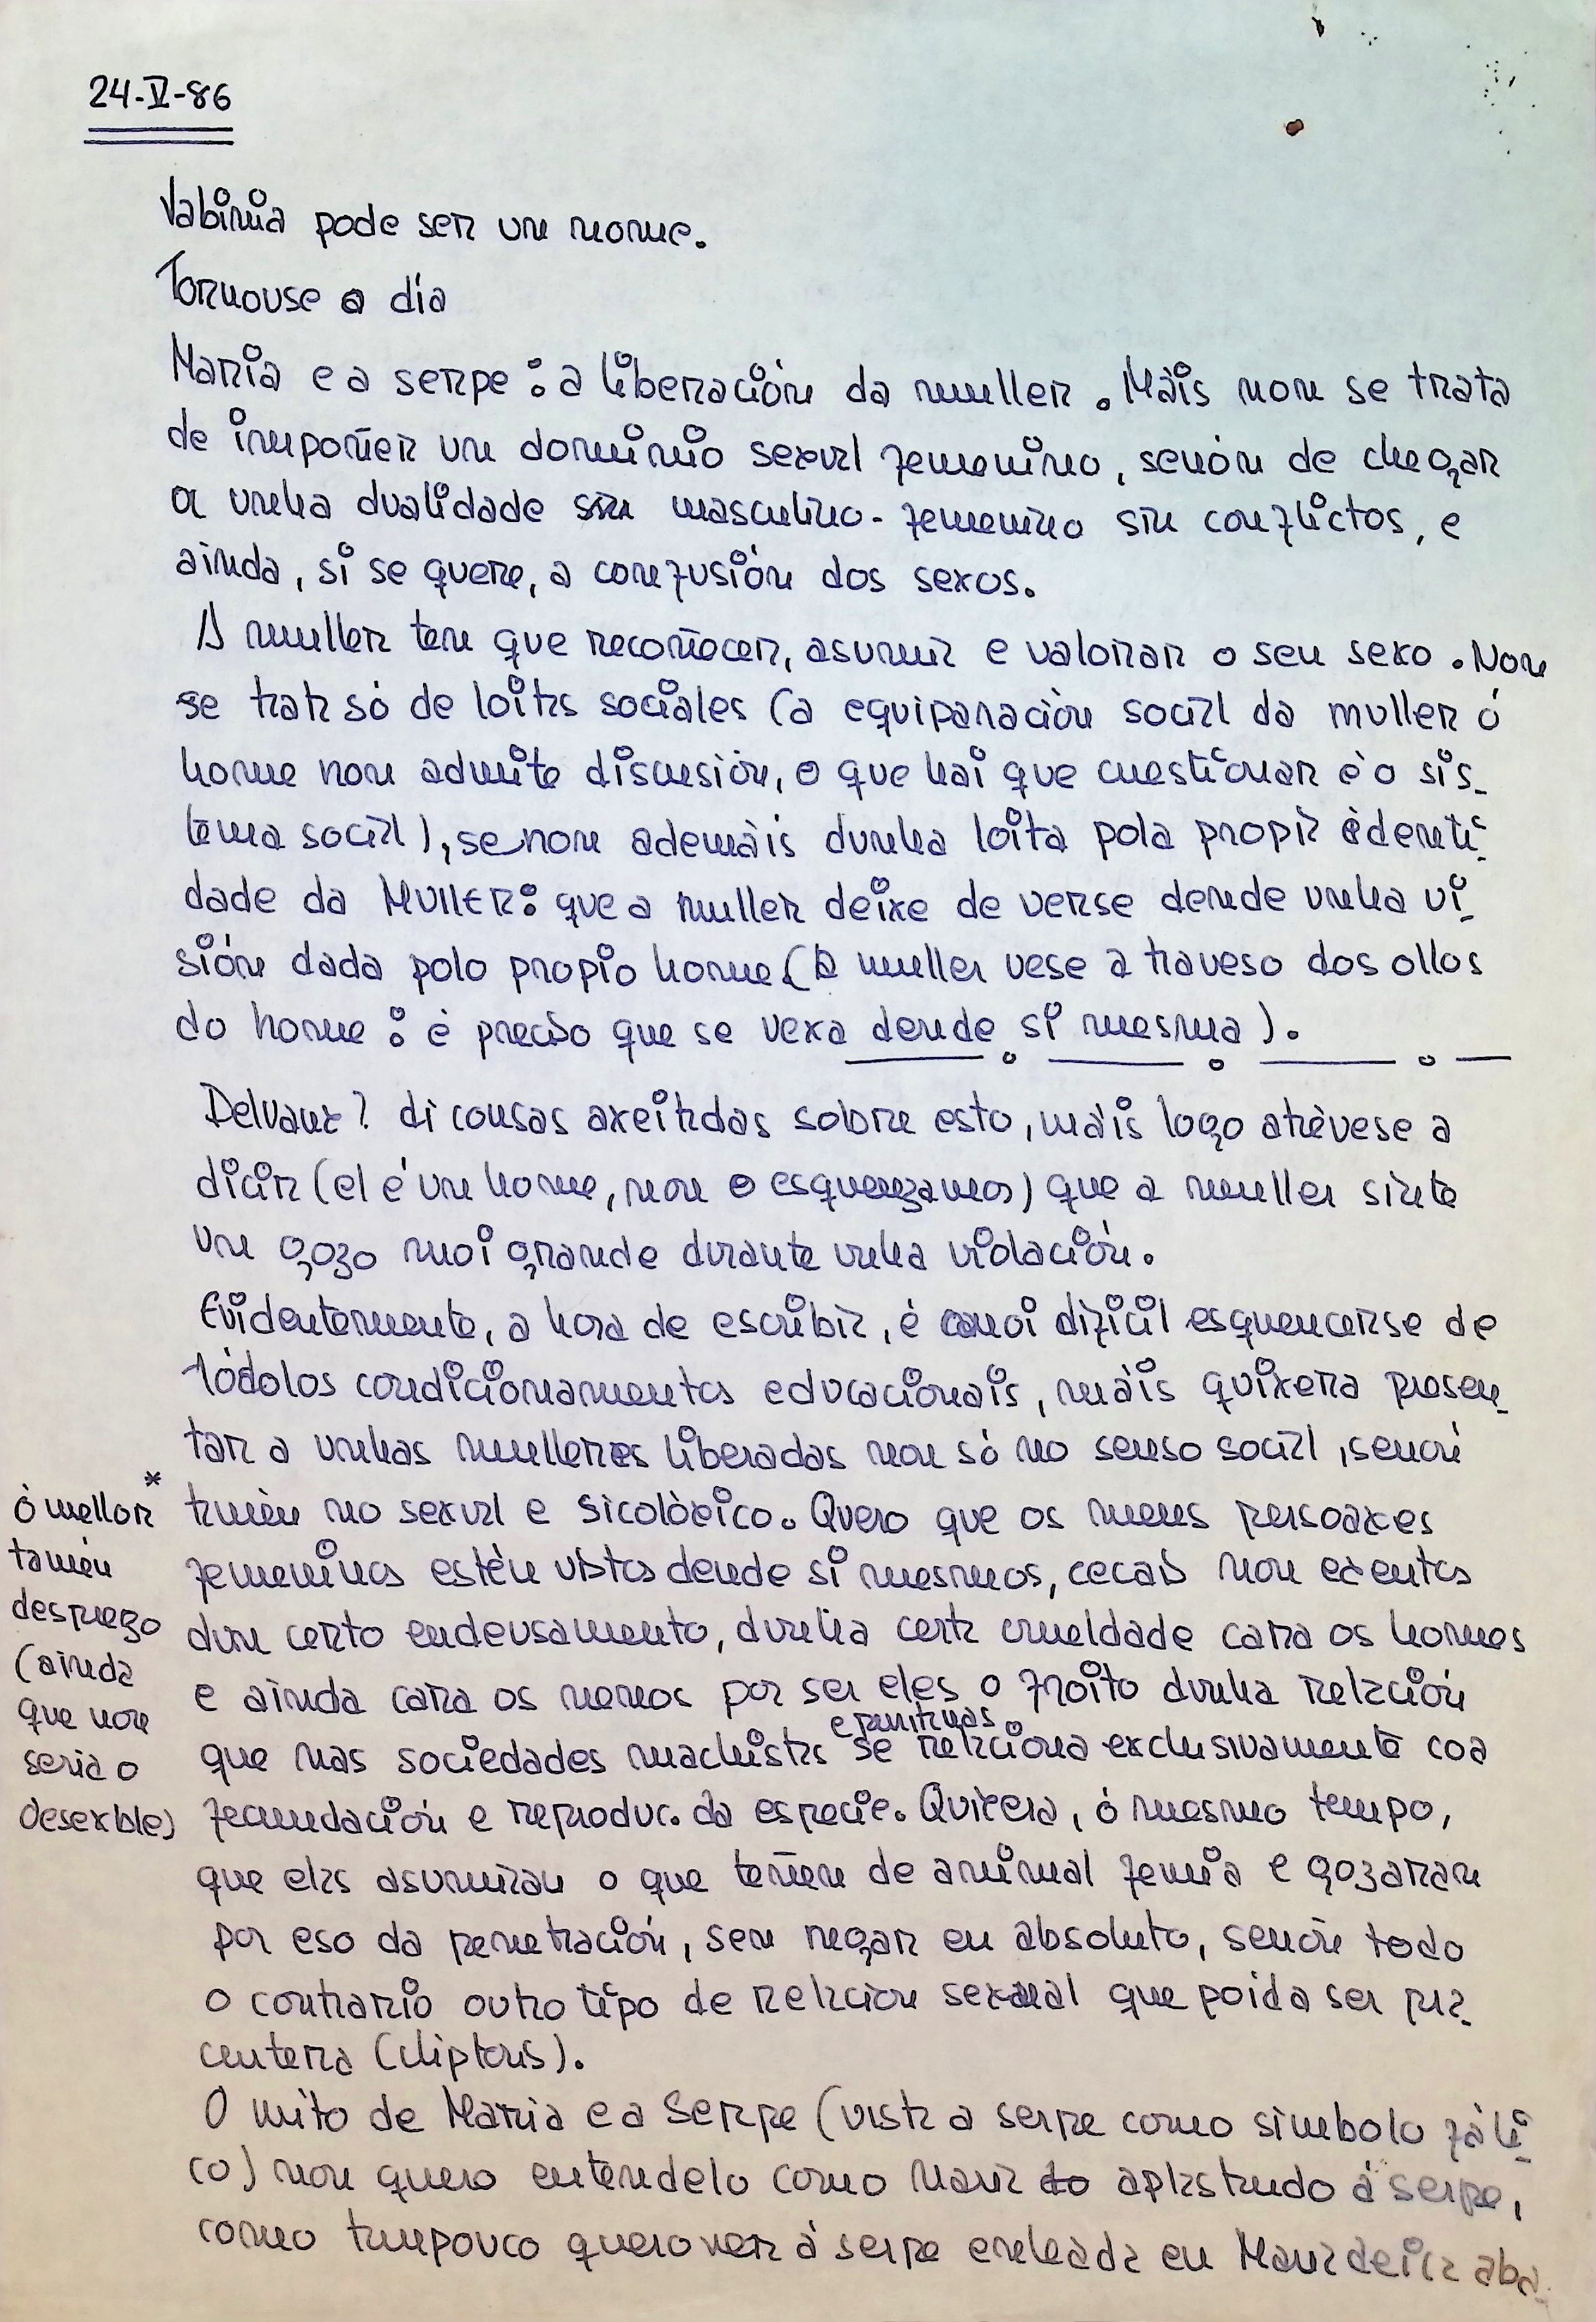 24-V-86
Vabinia pode ser un nome.
Tornouse o día
María e a serpe: a liberación da muller. Máis non se trata
de impoñer un dominio sexual femenino, senón de chegar
a unha dualidade masculino-femenino sin conflictos, e
ainda, si se quere, a confusión dos sexos.
A muller ten que recoñecer, asumir e valorar o seu sexo. Non
se trata só de loitas sociales (a equiparación social da muller ó
home non admite discusión, o que hai que cuestionar é o sis-
tema social), se non ademáis dunha loita pola propia identi-
dade da MULLER: que a muller deixe de verse dende unha vi-
sión dada polo propio home (a muller vese a traveso dos ollos
do home: é preciso que se vexa dende si mesma).
Delvaux? di cousas axeitadas sobre esto, máis logo atrévese a
dicir (el é un home, non o esquenzamos) que a muller sinte
un gozo moi grande durante unha violación.
Evidentemente, a hora de escribir, é moi difícil esquencerse de
tódolos condicionamentos educacionais, máis quixera presen-
tar a unhas mulleres liberadas non só no senso social, senón
tamén no sexual e sicolóxico. Quero que os meus persoaxes
femeninos estén vistos dende si mesmos, cecais non exentos
dun certo endeusamento, dunha certa crueldade cara os homes
e ainda cara os nenos por ser eles o froito dunha relación
que nas sociedades machistas e primitivas se relaciona exclusivamente coa
fecundación e reproduc. da especie. Quixera, ó mesmo tempo,
que elas asumiran o que teñen de animal femia e gozaran
por eso da penetración, sen negar en absoluto, senón todo
o contrario outro tipo de relacion sexual que poida ser pra-
centera (cliptoris).
O mito de María e a Serpe (vista a serpe como símbolo fáli-
co) non quero entendelo como María aplastando á serpe,
como tampouco quero ver á serpe enleada en María deica aba-
* ó mellor
tamén
desprezo
(ainda
que non
sería o
desexble)